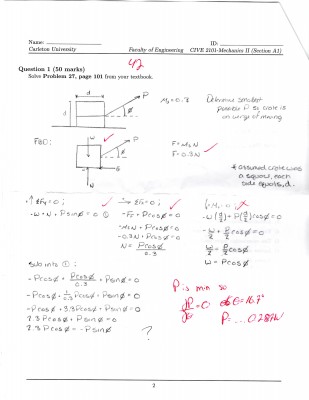 Name:
ID:
Carleton University
Faculty of Engineering
CIVE 2101-Mechanics II (Section A1)
42
Question 1 (50 marks)
Solve Problem 27, page 101 from your textbook.
d
P
d
ø
μs = 0.3
Determine smallest
possible P so crate is
on verge of moving
FBD:
w
P
ø
N
F = μsN
F = 0.3N
* assumed crate was
a square, each
side equals, d.
+↑ ΣFy = 0 ;
-W + N + Psinø = 0 ①
ΣFx = 0 ;
-Ff + Pcosø = 0
-μsN + Pcosø = 0
-0.3N + Pcosø = 0
N = Pcosø / 0.3
-W/2 + P/2 cosø = 0
W/2 = P/2 cosø
W = Pcosø
Sub into ① :
-Pcosø + Pcosø/0.3 + Psinø = 0
-Pcosø + 1/0.3 Pcosø + Psinø = 0
-Pcosø + 3.3Pcosø + Psinø = 0
2.3Pcosø + Psinø = 0
2.3Pcosø = -Psinø
?
P is min so
P = ... 0.28
2